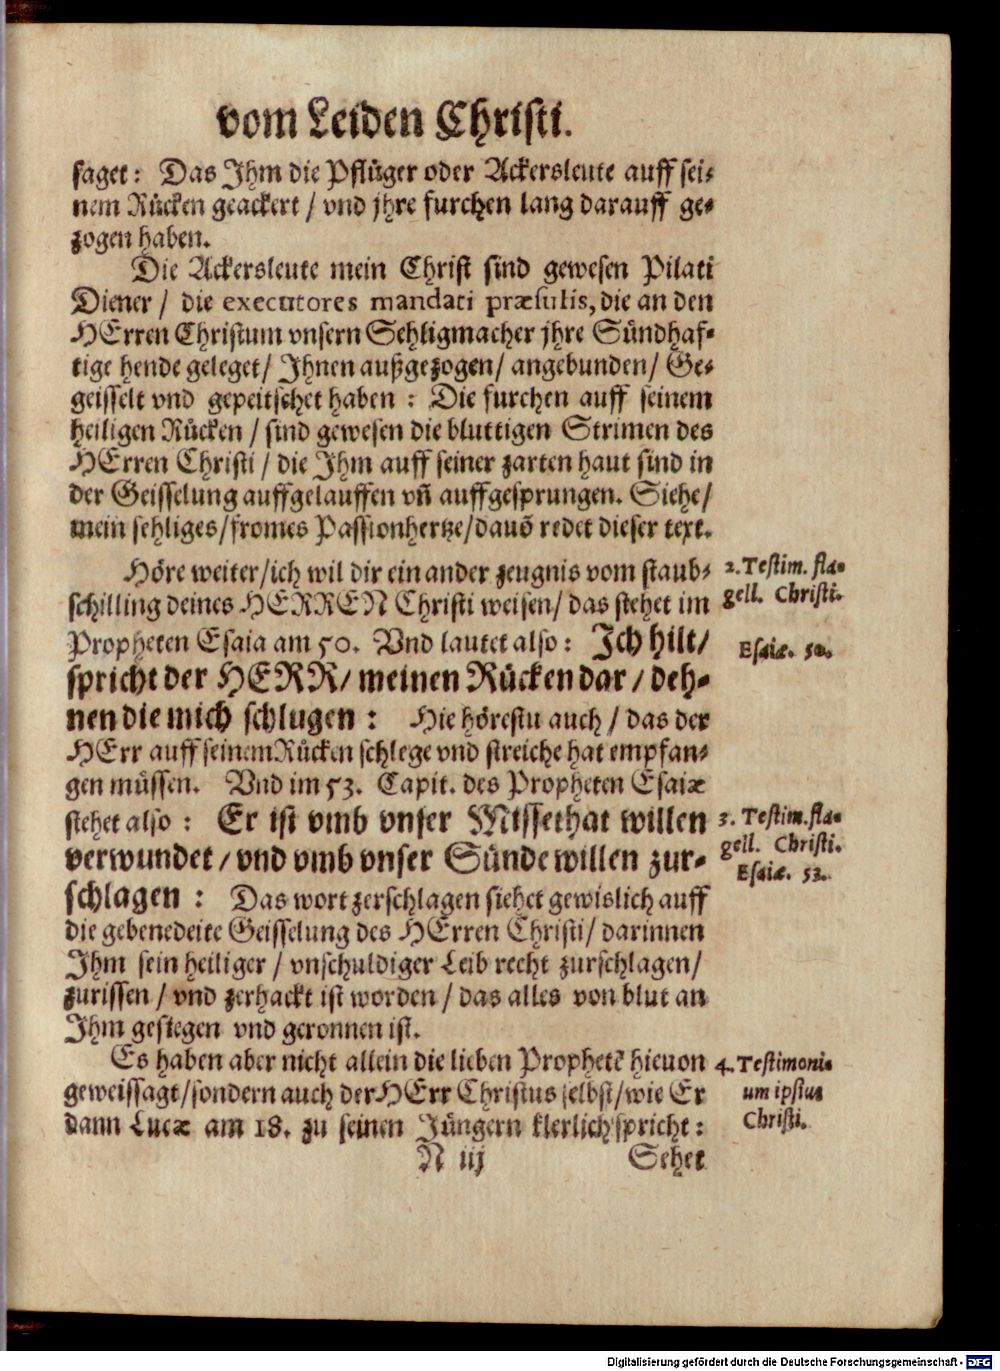 vom Leiden Christi.
saget: Das Jhm die Pflüger oder Ackersleute auff sei-
nem Rücken geackert / vnd jhre furchen lang darauff ge-
zogen haben.
Die Ackersleute mein Christ sind gewesen Pilati
Diener / die executores mandati præsulis, die an den
HErren Christum vnsern Sehligmacher jhre Sündhaf-
tige hende geleget / Jhnen außgezogen / angebunden / Ge-
geisselt vnd gepeitschet haben : Die furchen auff seinem
heiligen Rücken / sind gewesen die bluttigen Strimen des
HErren Christi / die Jhm auff seiner zarten haut sind in
der Geisselung auffgelauffen vñ auffgesprungen. Siehe /
mein sehliges / fromes Passionhertze / dauõ redet dieser text.
Höre weiter / ich wil dir ein ander zeugnis vom staub-
schilling deines HERREN Christi weisen / das stehet im
Propheten Esaia am 50. Vnd lautet also : Jch hilt /
spricht der HERR / meinen Rücken dar / deh-
nen die mich schlugen : Hie hörestu auch / das der
HErr auff seinem Rücken schlege vnd streiche hat empfan-
gen müssen. Vnd im 53. Capit. des Propheten Esaiæ
stehet also : Er ist vmb vnser Missethat willen
verwundet / vnd vmb vnser Sünde willen zur-
schlagen : Das wort zerschlagen siehet gewislich auff
die gebenedeite Geisselung des HErren Christi / darinnen
Jhm sein heiliger / vnschuldiger Leib recht zurschlagen /
zurissen / vnd zerhackt ist worden / das alles von blut an
Jhm gestegen vnd geronnen ist.
Es haben aber nicht allein die lieben Prophetẽ hieuon
geweissagt / sondern auch der HErr Christus selbst / wie Er
dann Lucæ am 18. zu seinen Jüngern klerlich spricht :
N iij Sehet
2. Testim. fla-
gell. Christi.
Esaiæ. 50.
3. Testim. fla-
gell. Christi.
Esaiæ. 53.
4. Testimoni-
um ipsius
Christi.
Digitalisierung gefördert durch die Deutsche Forschungsgemeinschaft - DFG